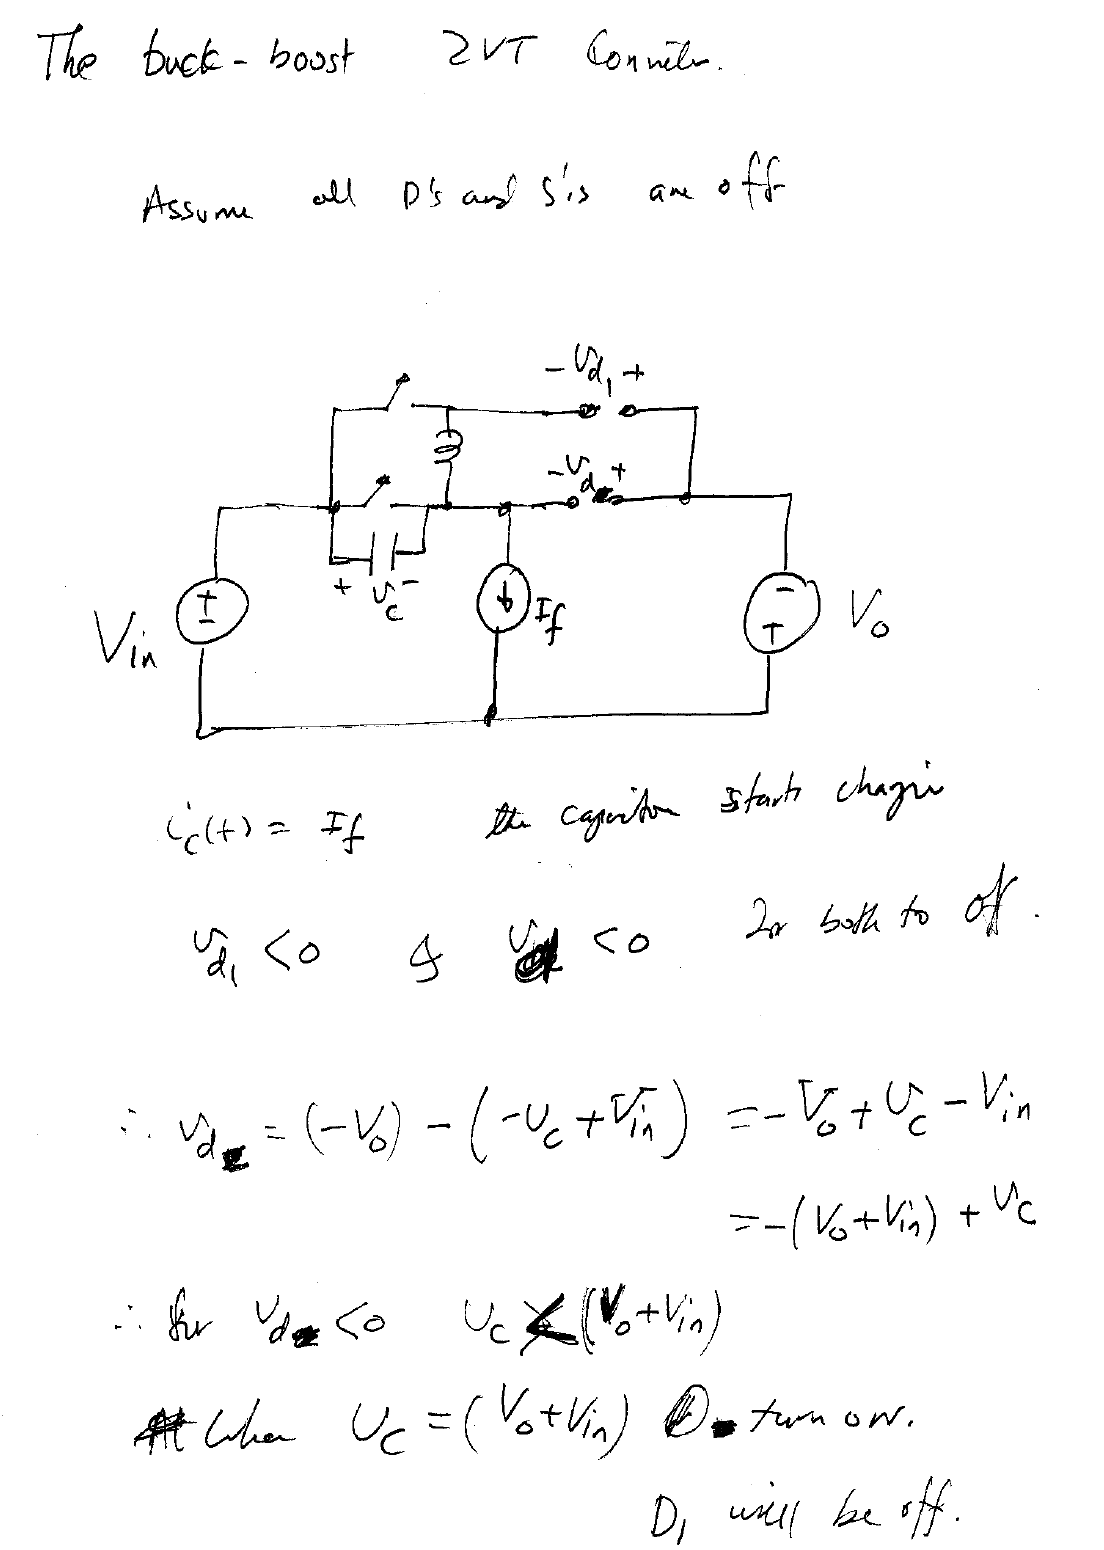 The buck-boost ZVT Converter.
Assume all D's and S's are off
- Vd1 +
- Vd +
+ Vc -
Vin
+
-
If
-
+
Vo
ic(t) = If the capacitor starts chargin
Vd1 <0 & Vd <0 for both to off.
∴ Vd = (-Vo) - (-Vc + Vin) = -Vo + Vc - Vin
= -(Vo+Vin) + Vc
∴ for Vd <0 Vc < (Vo+Vin)
When Vc = (Vo+Vin) D turn on.
D1 will be off.